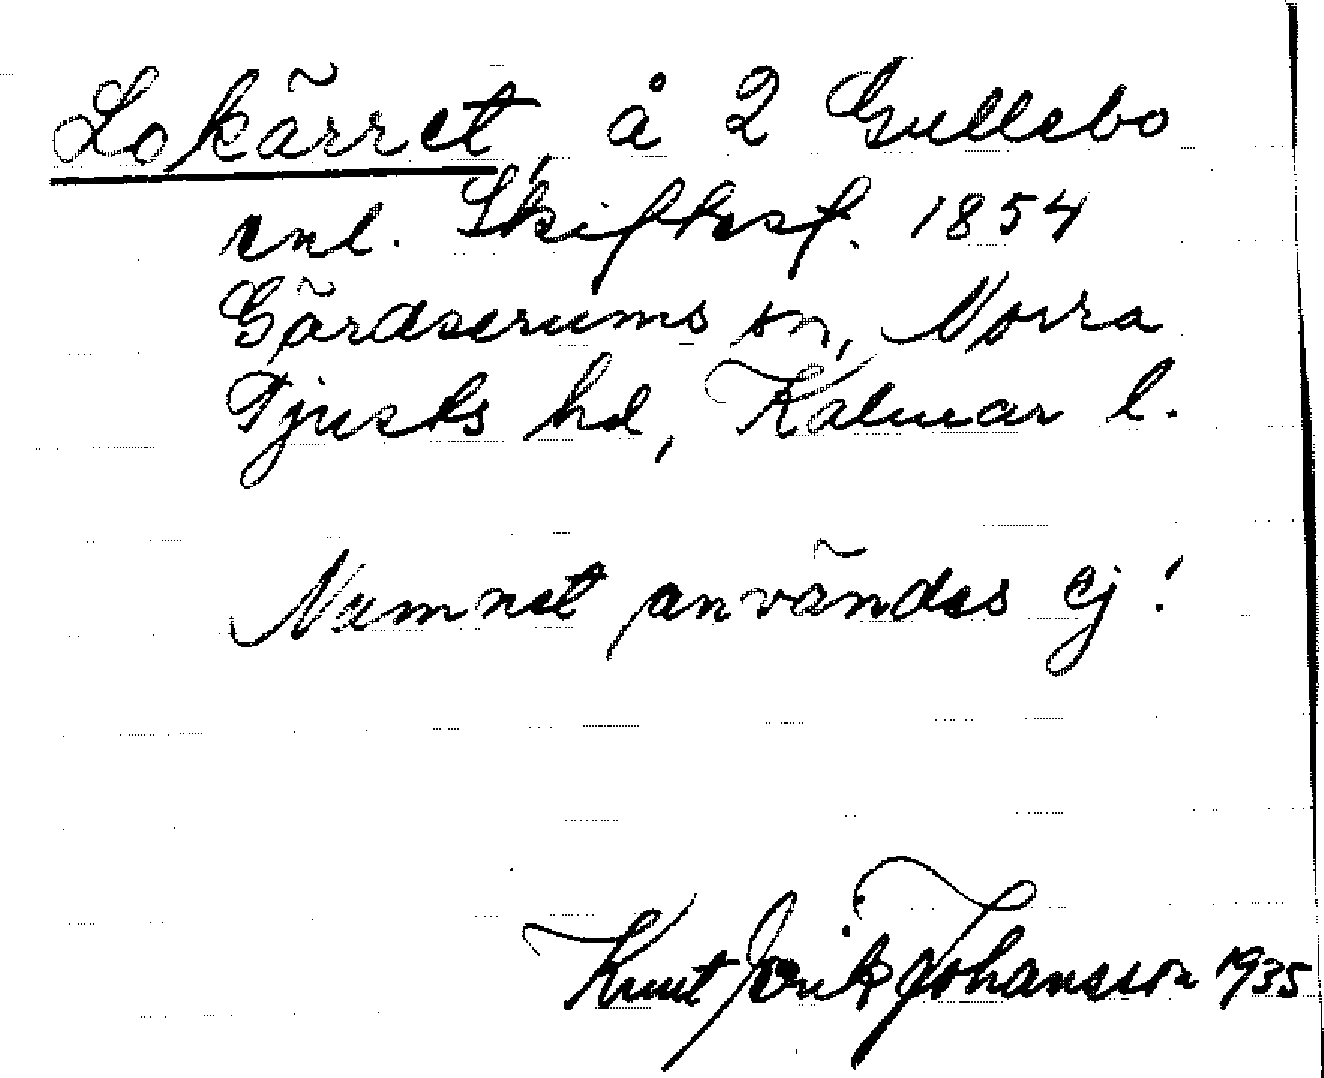 Lokärret, å 2 Gullebo
enl. Skiftesf. 1854
Gärdserums sn, Norra
Tjusts hd, Kalmar l.
Namnet användes ej!
Knut Erik Johansson 1935